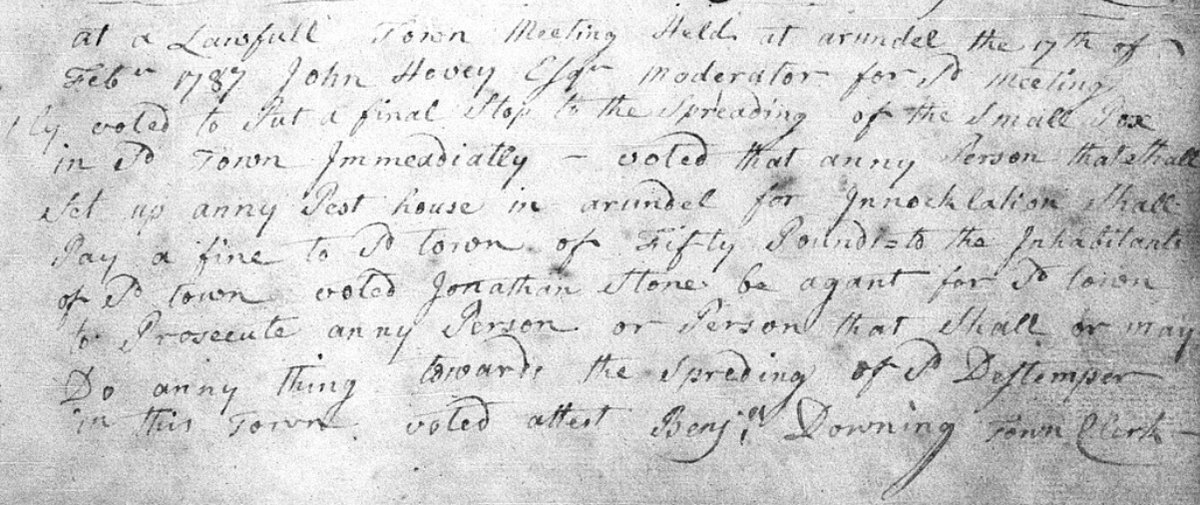 at a Lawfull Town Meeting Held at arundel the 17th of
Febr 1787 John Hovey Esqr moderator for sd meeting
1ly voted to Put a final Stop to the Spreading of the Small Pox
in sd Town Immeadiatly - voted that anny Person that shall
Set up anny Pest house in arundel for Innocklation Shall
Pay a fine to sd town of Fifty Pounds = to the Inhabitants
of sd town voted Jonathan Stone be agant for sd town
to Prosecute anny Person or Person that Shall or may
Do anny thing towards the Spreding of sd Destemper
in this Town voted attest Benjn Downing Town Clerk -